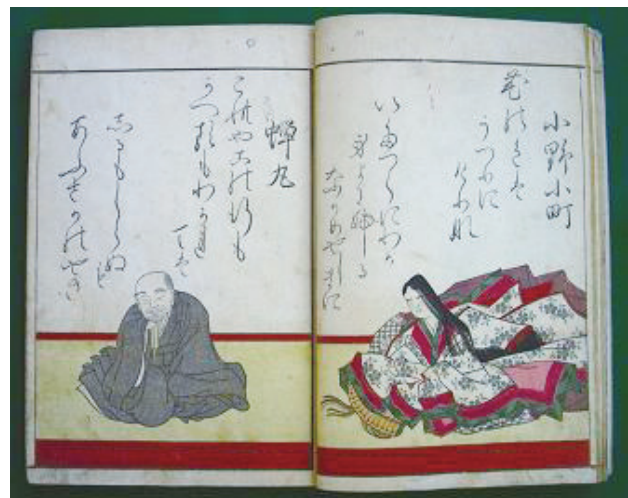 小野小町
花の色は
うつりに
けりな
いたつらにわか
身よにふる
なかめせしまに
蝉丸
これやこの行も
かへるもわかれ
ては
しるもしらぬ
も
あふさかのせき